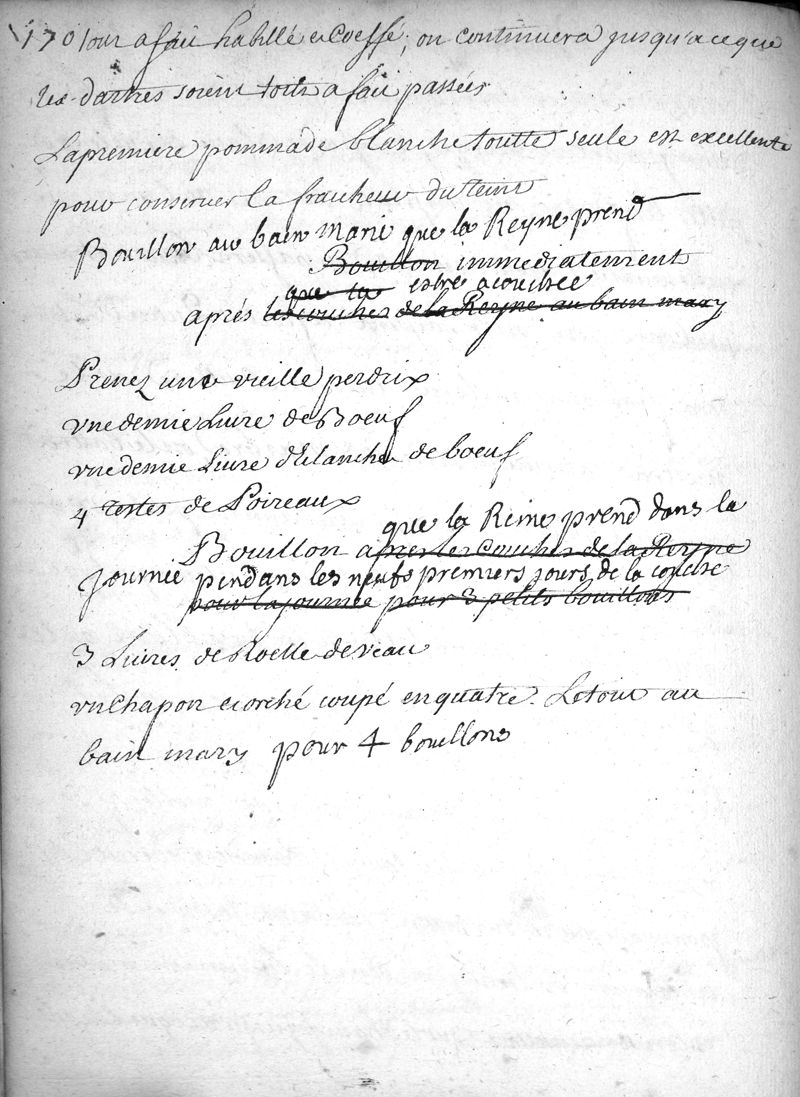 170 tour a fait habillé et Coeffé; on continuera jusqu'a ce que
les dartres soient touts a fait passées
La premiere pommade blanche toutte seule est excellente
pour conserver la fraicheur du teint
Bouillon au bain Marie que la Reyne prend
Bouillon immediatement
que la estre acouchée
aprés les couches de la Reyne au bain mary
Prenez une vieille perdrix
une demie Livre de Boeuf
une demie Livre d'Eclanche de boeuf
4 Testes de Poireaux
que la Reine prend dans la
Bouillon apres les Couches de la Reyne
journée pendans les neufs premiers jours de la couche
pour la journée pour 3 petits bouillons
3 Livres de Roelle de veau
un Chapon ecorché coupé en quatre. Le tour au
bain mary pour 4 bouillons